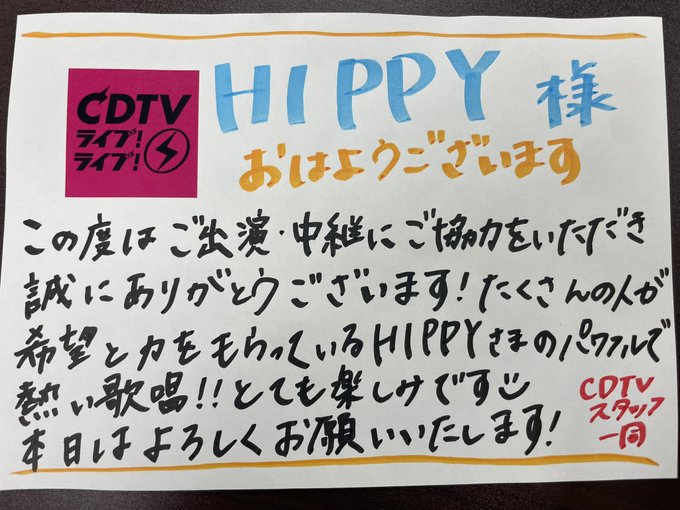 CDTV
ライブ!
ライブ!
HIPPY 様
おはようございます
この度は ご出演・中継に ご協力をいただき
誠に ありがとうございます! たくさんの人が
希望と力をもらっているHIPPYさまのパワフルで
熱い歌唱!! とても楽しみです
本日は よろしくお願いいたします!
CDTV
スタッフ
一同